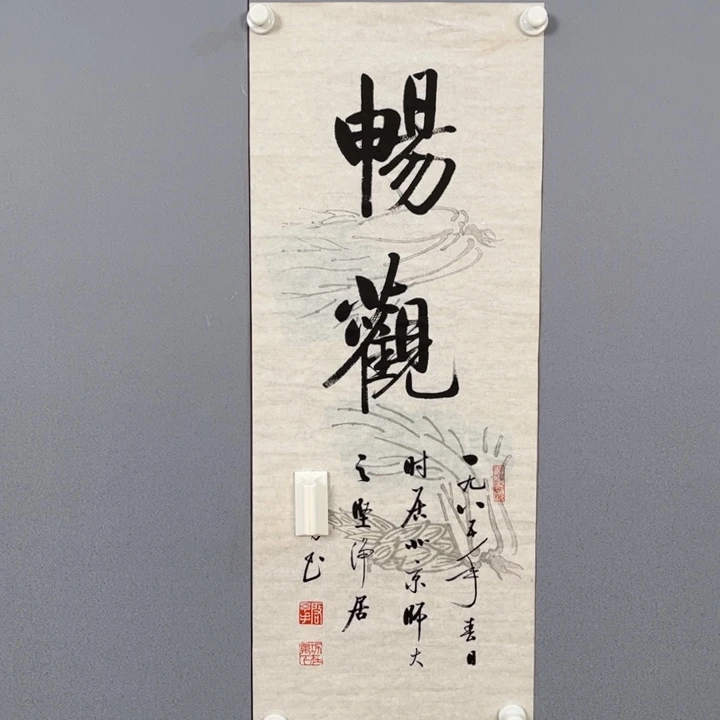 暢觀
一九八五年春日
时居北京师大
之堅淨居